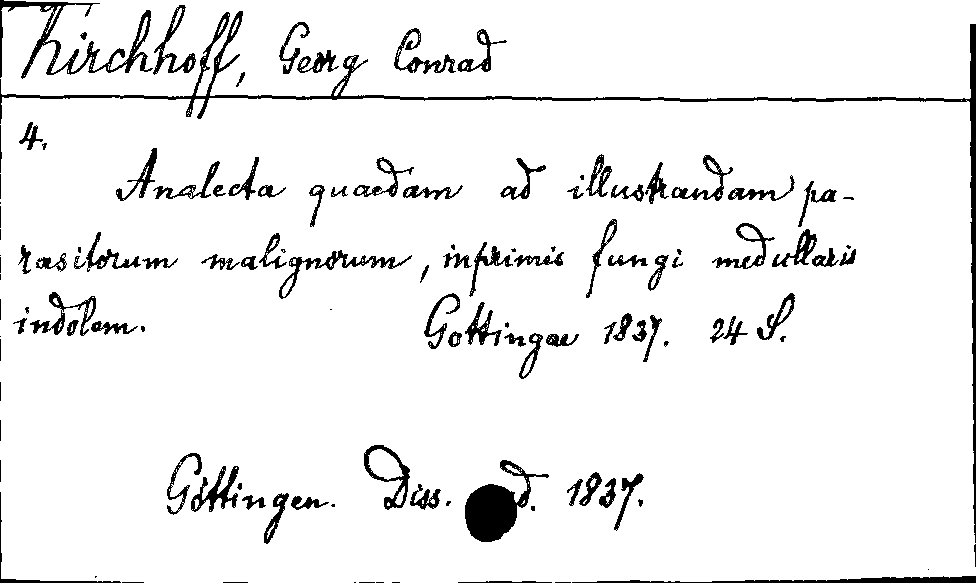 Kirchhoff, Georg Conrad
4.
Analecta quaedam ad illustrandam pa-
rasitorum malignorum, inprimis fungi medullaris
indolem. Gottingae 1837. 24 S.
Göttingen. Diss. 1837.